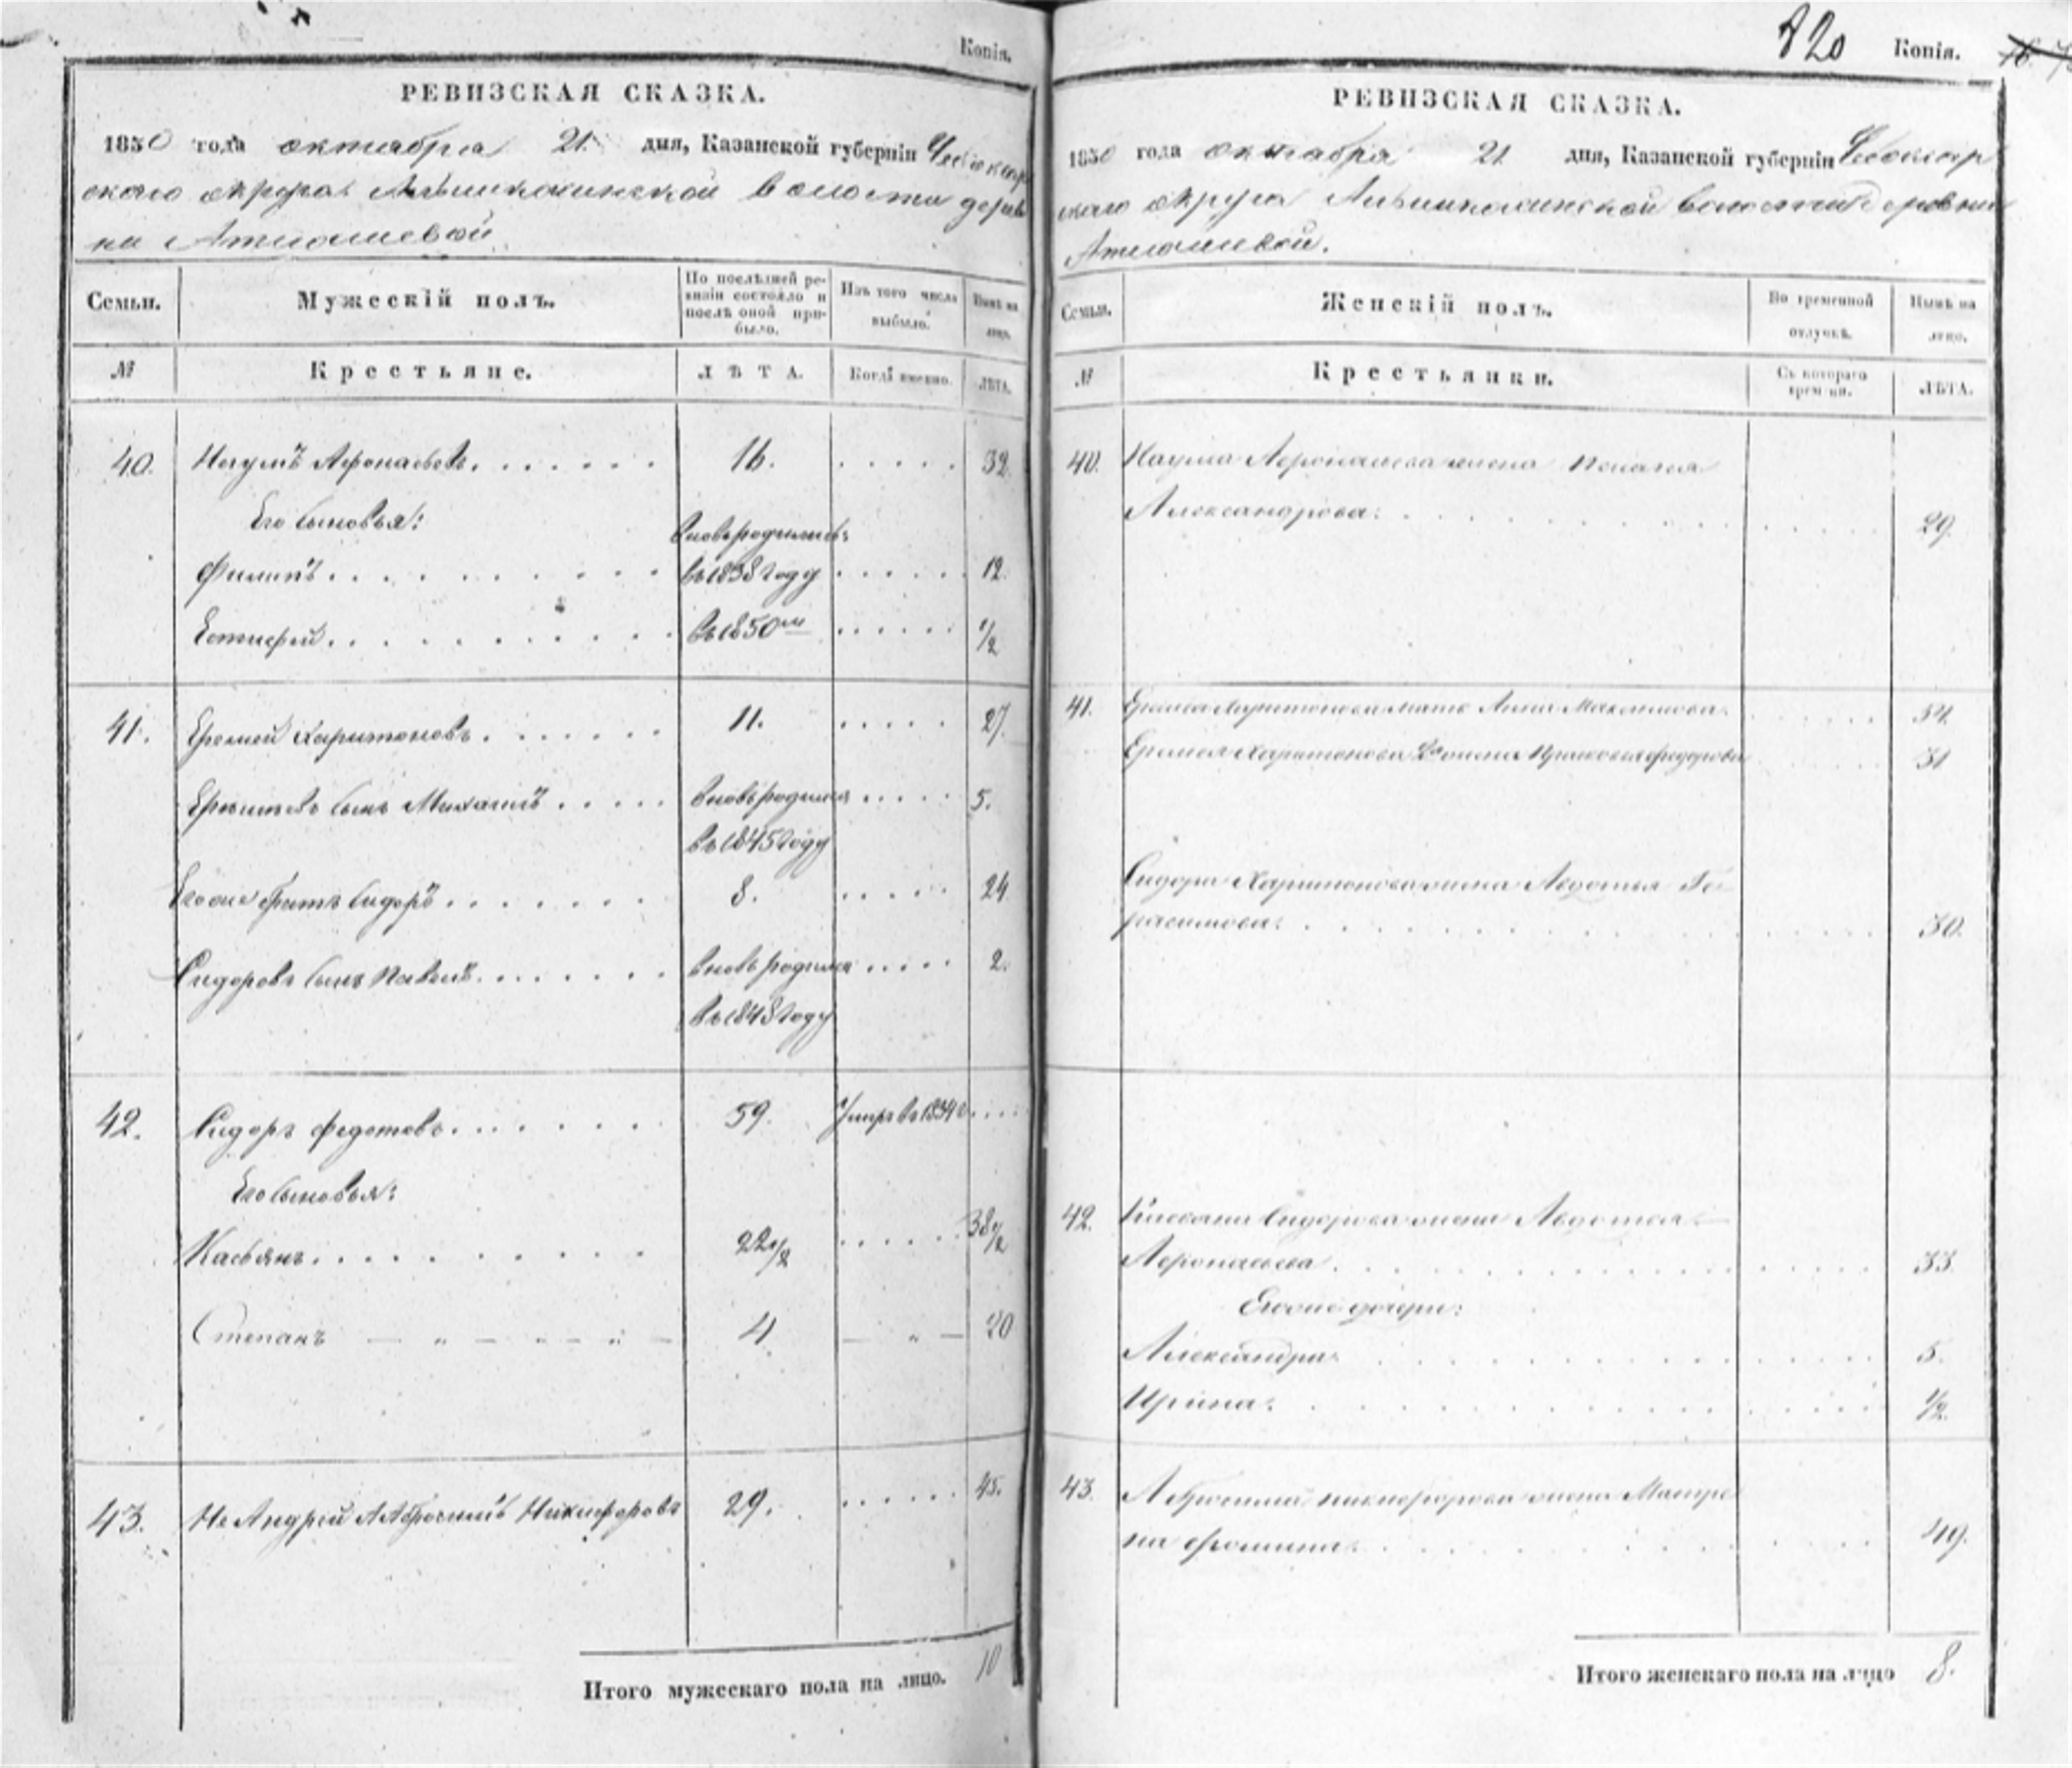 Копія.
РЕВИЗСКАЯ СКАЗКА.
1850 года октября 21 дня, Казанской губерніи Чебоксар
скаго округа волости дерев
ни Атлашевой
Семьи. Мужескій полъ. По послѣдней ре- Изъ того числа Нынѣ на
визіи состояло и выбыло. лицо.
послѣ оной при-
было.
№ Крестьяне. ЛѢТА. Когда именно. ЛѢТА.
40. Наумъ Афонасьевъ. 16. 32.
Его сыновья: вновь родились:
Филипъ. въ 1838 году 12.
Естифей. въ 1850 м 1/2
41. Еремей Харитоновъ. 11. 27.
сынъ Михаилъ вновь родился 5.
въ 1845 году
Его же братъ Сидоръ. 8. 24
Сидоровъ сынъ Павелъ. вновь родился 2.
въ 1848 году
42. Сидоръ Федотовъ. 59. Умеръ въ 1834 г.
Его сыновья:
Касьянъ. 22 1/2 38 1/2
Степанъ — „ — „ — „ — 4. — „ — 20
43. Не Андрей А Абросимъ Никифоровъ 29. 45.
Итого мужескаго пола на лицо. 10
820 Копія.
РЕВИЗСКАЯ СКАЗКА.
1850 года октября 21 дня, Казанской губерніи Чебоксар
скаго округа волости деревни
Атлашевой.
Семьи. Женскій полъ. Во временной Нынѣ на
отлучкѣ. лицо.
№ Крестьянки. Съ котораго ЛѢТА.
времени.
40. Наума Афонасьева жена Пелагея
Александрова. 29.
41. Еремея Харитонова мать Анна Максимова. 54.
Еремея Харитонова 2я жена Прасковья Федорова 31
Сидора Харитонова жена Авдотья Ге
расимова. 30.
42. Касьяна Сидорова жена Авдотья
Афонасьева. 33.
Его же дочери:
Александра. 5.
Ирина. 1/2.
43. Абросима Никифорова жена Матре
на Фомина. 49.
Итого женскаго пола на лицо 8.